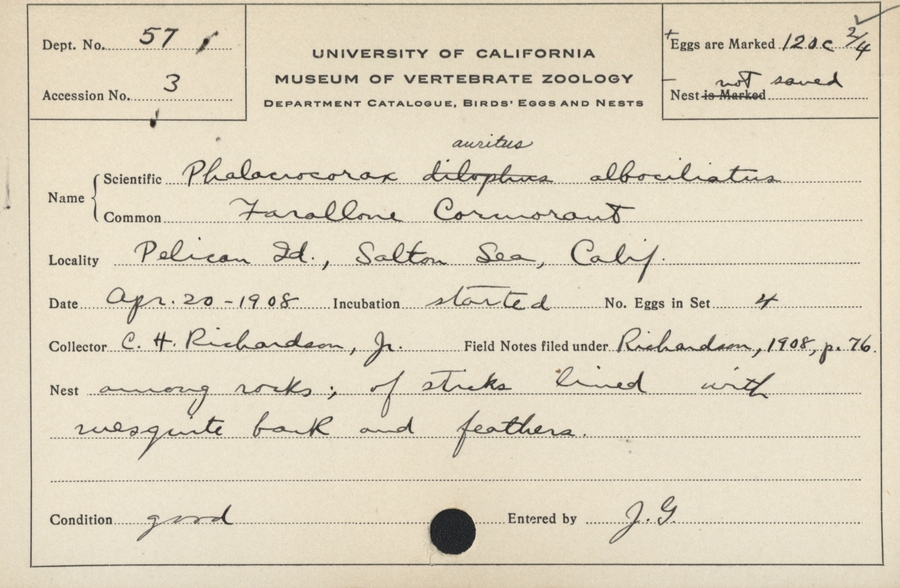 Dept. No. 57
Accession No. 3
UNIVERSITY OF CALIFORNIA
MUSEUM OF VERTEBRATE ZOOLOGY
DEPARTMENT CATALOGUE, BIRDS' EGGS AND NESTS
Eggs are Marked 120c 2/4
not saved
Nest is Marked
auritus
Name Scientific Phalacrocorax dilophus albociliatus
Common Farallone Cormorant
Locality Pelican Id., Salton Sea, Calif.
Date Apr. 20-1908 Incubation started No. Eggs in Set 4
Collector C. H. Richardson, Jr. Field Notes filed under Richardson, 1908, p. 76.
Nest among rocks; of sticks lined with
mesquite bark and feathers.
Condition good Entered by J.G.